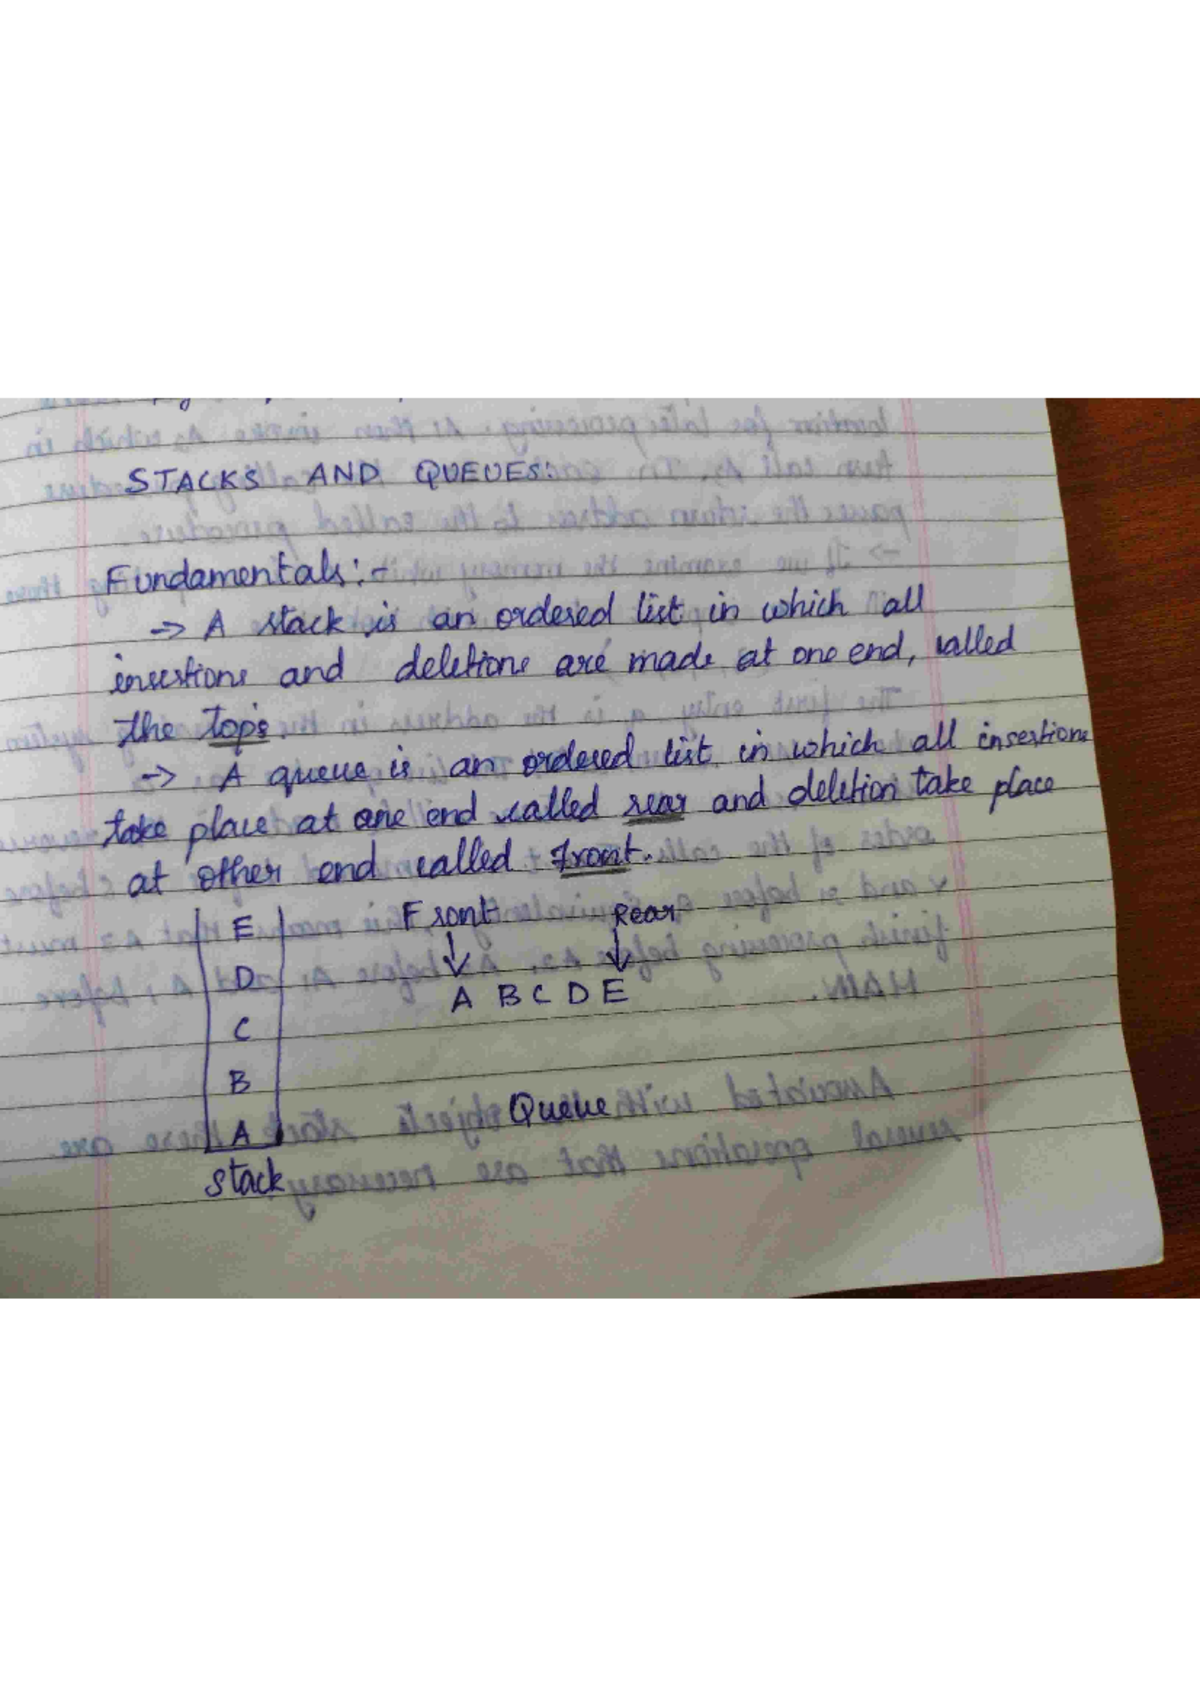 STACKS AND QUEUES:
Fundamentals:-
-> A stack is an ordered list in which all
insertions and deletions are made at one end, called
the top's
-> A queue is an ordered list in which all insertions
take place at one end called rear and deletion take place
at other end called front.
E
D
C
B
A
stack
Front Rear
A B C D E
Queue